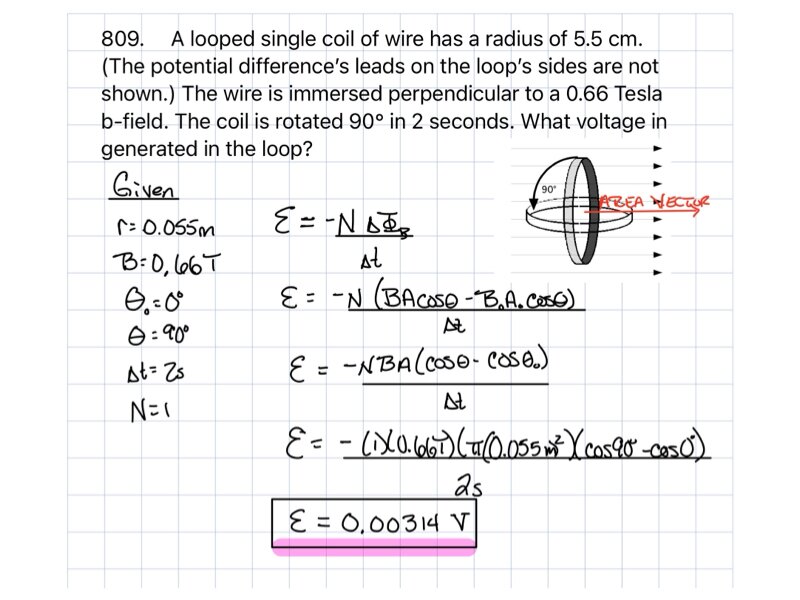 809. A looped single coil of wire has a radius of 5.5 cm.
(The potential difference's leads on the loop's sides are not
shown.) The wire is immersed perpendicular to a 0.66 Tesla
b-field. The coil is rotated 90° in 2 seconds. What voltage in
generated in the loop?
90°
AREA VECTOR
Given
r=0.055m
B=0,66T
θ₀=0°
θ=90°
Δt=2s
N=1
Ɛ = -N ΔΦ_B
Δt
Ɛ = -N (BAcosθ - B₀A₀cosθ)
Δt
Ɛ = -NBA(cosθ - cosθ₀)
Δt
Ɛ = -(1)(0.66T)(π(0.055m)²)(cos90° - cos0°)
2s
Ɛ = 0.00314 V